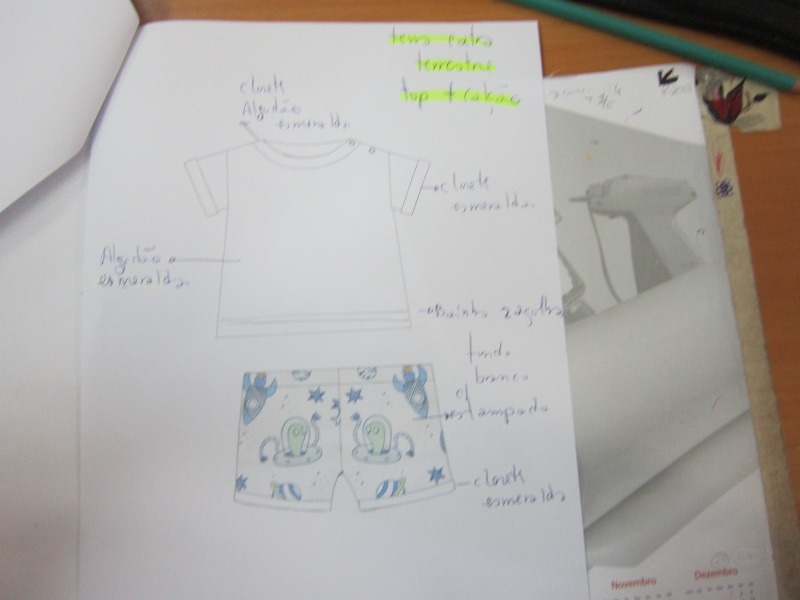 terra
terrestre
top + calção
clouete
Algodão
esmeralda
clouete
esmeralda
Algodão
esmeralda
Bainha 2 agulhas
fundo
branco
c/
estampado
clouete
esmeralda
Novembro
Dezembro